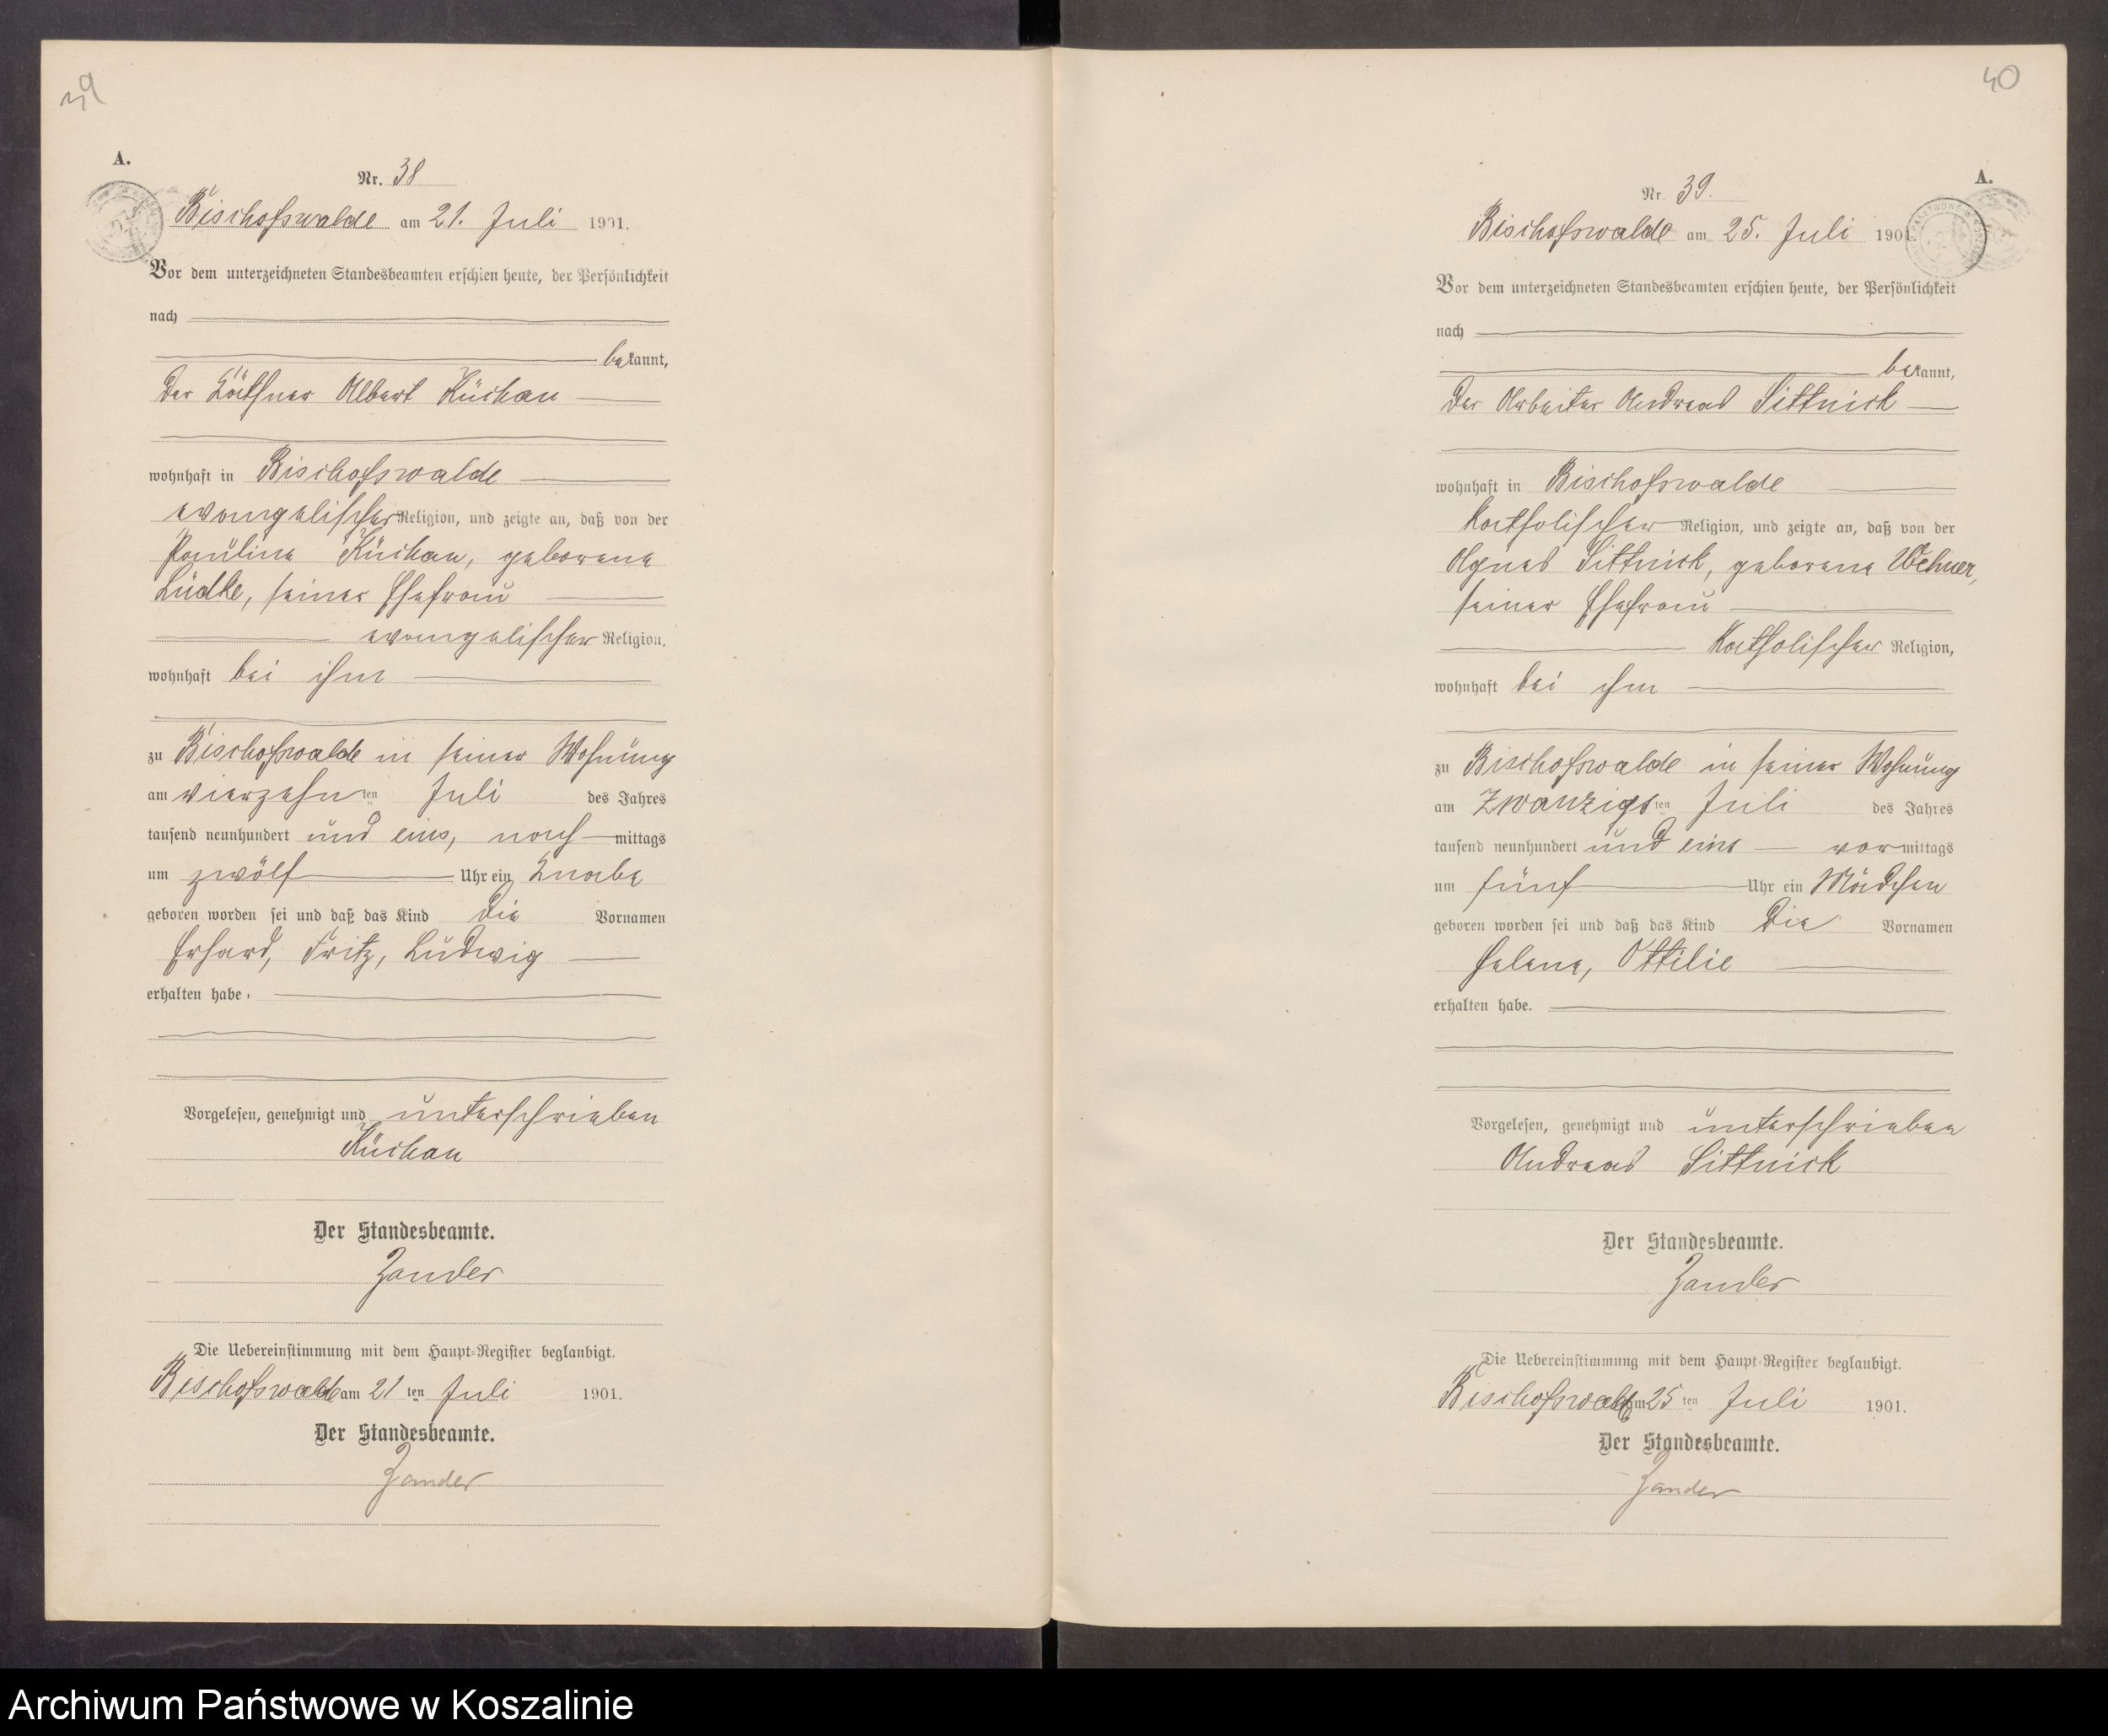 39
A.
Nr. 38
Bischofswalde am 21. Juli 1901.
Vor dem unterzeichneten Standesbeamten erschien heute, der Persönlichkeit
nach
bekannt,
der Käthner Albert Küchau
wohnhaft in Bischofswalde
evangelischer Religion, und zeigte an, daß von der
Pauline Küchau, geborene
Lüdke, seiner Ehefrau
evangelischer Religion,
wohnhaft bei ihm
zu Bischofswalde in seiner Wohnung
am vierzehnten Juli des Jahres
tausend neunhundert und eins, nachmittags
um zwölf Uhr ein Knabe
geboren worden sei und daß das Kind die Vornamen
Erhard, Fritz, Ludwig
erhalten habe.
Vorgelesen, genehmigt und unterschrieben
Küchau
Der Standesbeamte.
Zander
Die Uebereinstimmung mit dem Haupt-Register beglaubigt.
Bischofswalde am 21ten Juli 1901.
Der Standesbeamte.
Zander
40
A.
Nr. 39.
Bischofswalde am 25. Juli 1901
Vor dem unterzeichneten Standesbeamten erschien heute, der Persönlichkeit
nach
bekannt,
der Arbeiter Andreas Sittnick
wohnhaft in Bischofswalde
katholischer Religion, und zeigte an, daß von der
Agnes Sittnick, geborene Wehner,
seiner Ehefrau
katholischer Religion,
wohnhaft bei ihm
zu Bischofswalde in seiner Wohnung
am zwanzigsten Juli des Jahres
tausend neunhundert und eins vormittags
um fünf Uhr ein Mädchen
geboren worden sei und daß das Kind die Vornamen
Helene, Ottilie
erhalten habe.
Vorgelesen, genehmigt und unterschrieben
Andreas Sittnick
Der Standesbeamte.
Zander
Die Uebereinstimmung mit dem Haupt-Register beglaubigt.
Bischofswalde am 25ten Juli 1901.
Der Standesbeamte.
Zander
Archiwum Państwowe w Koszalinie